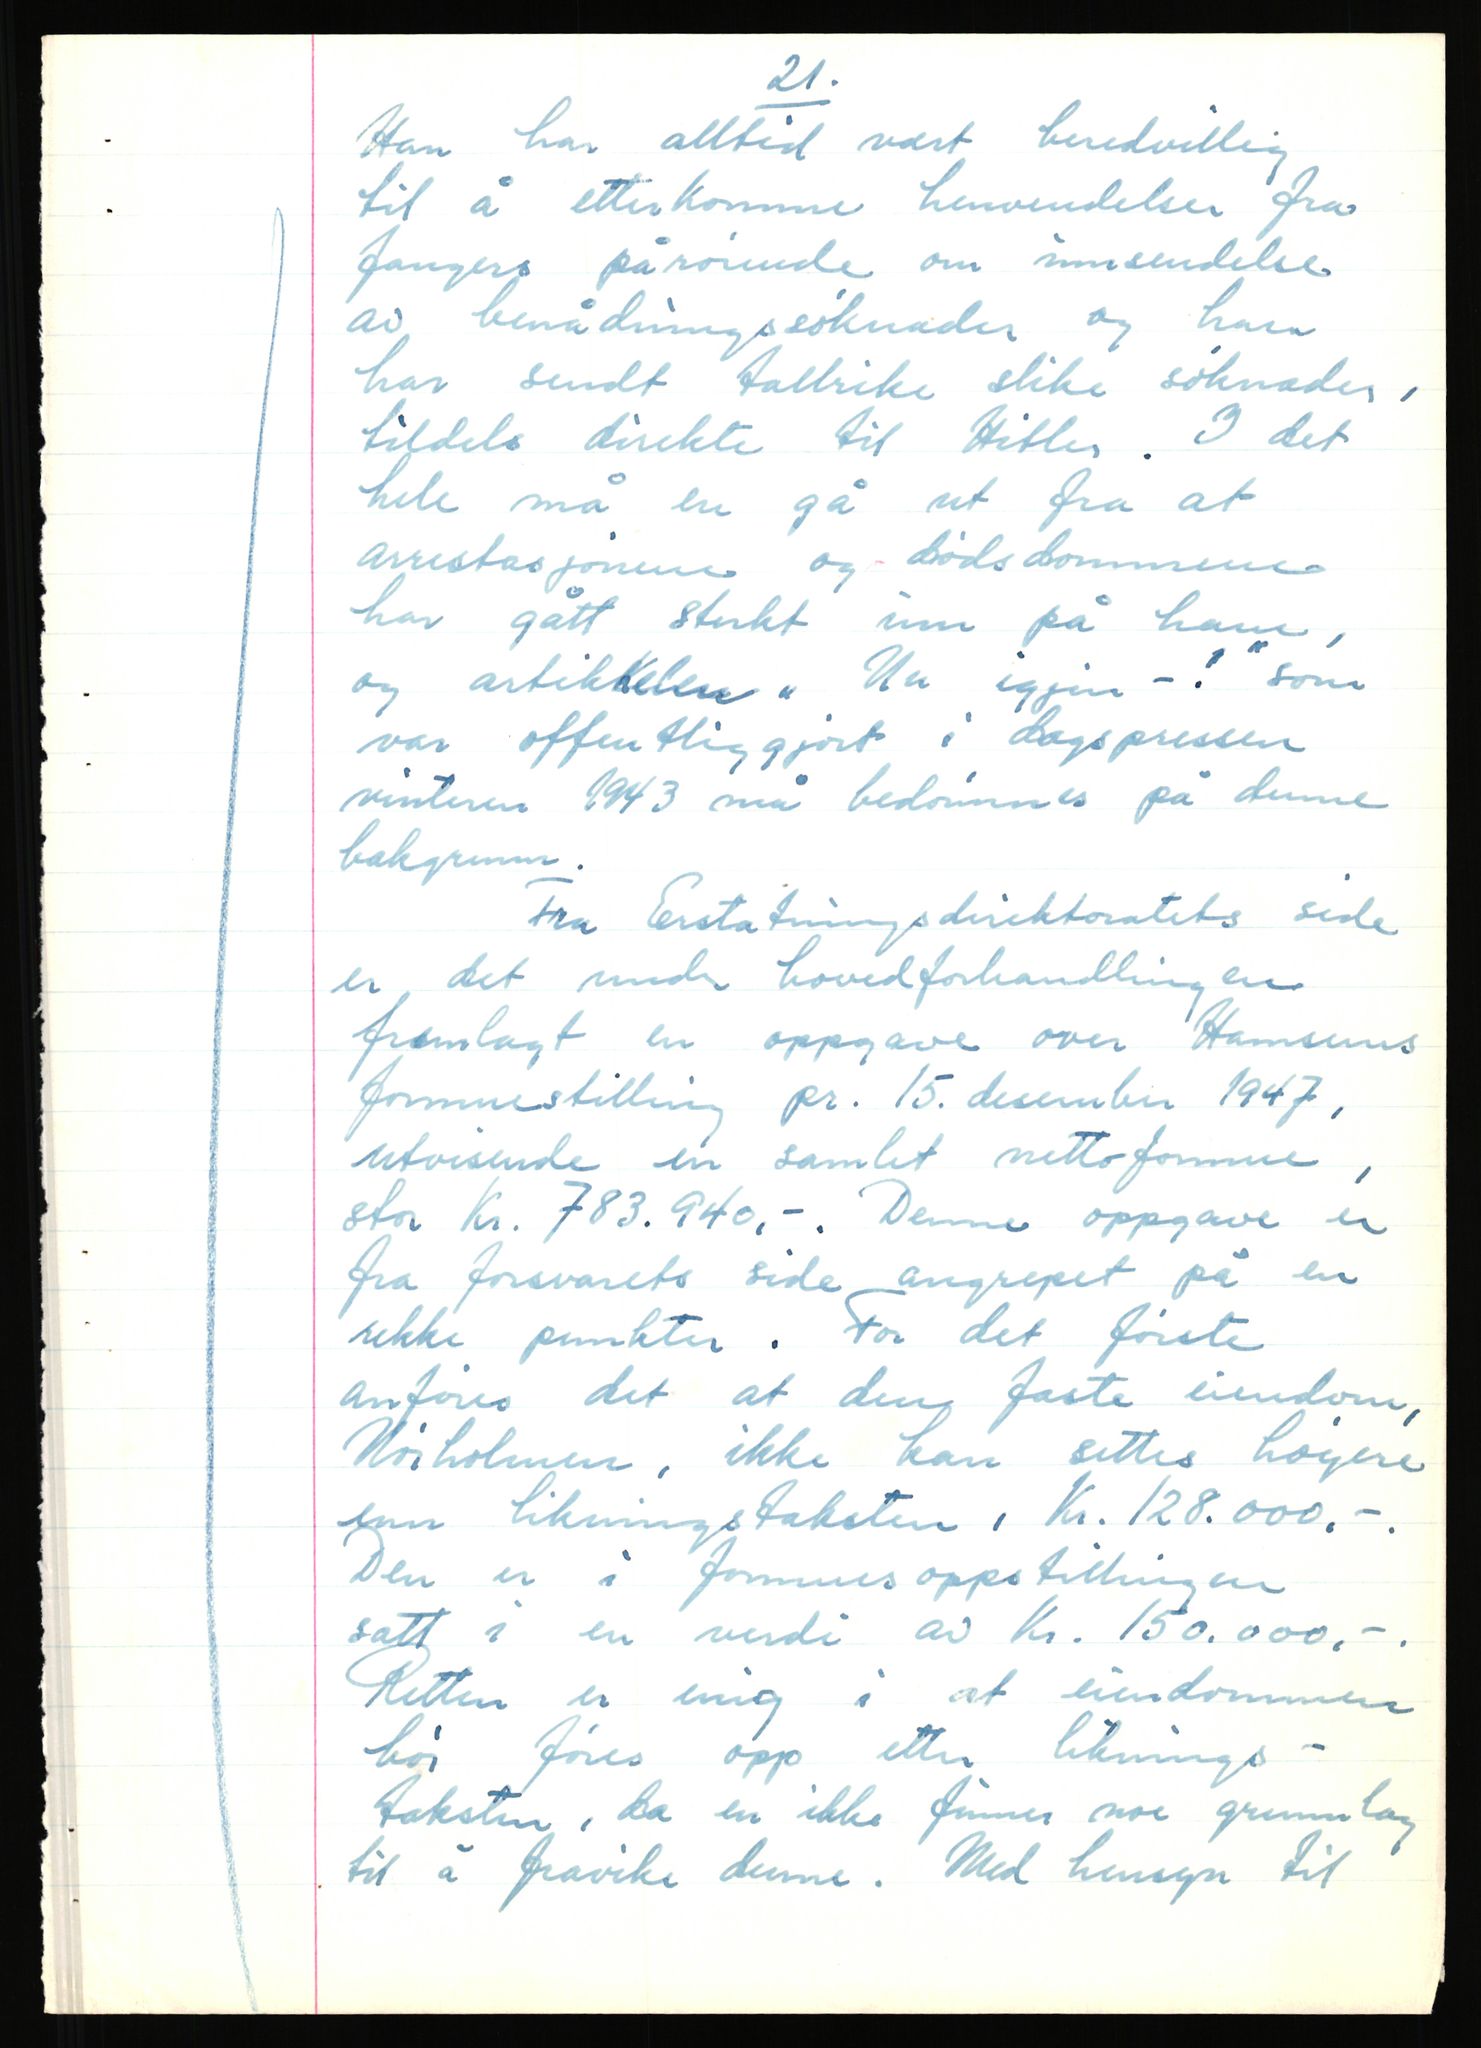 21.
Han har alltid vært beredvillig
til å etterkomme henvendelser fra
fangers pårörende om innsendelse
av benådningssöknader og han
har sendt tallrike slike söknader,
tildels direkte til Hitler. I det
hele må en gå ut fra at
arrestasjonene og dödsdommene
har gått sterkt inn på ham,
og artikkelen „Nu igjen -!" som
var offentliggjort i dagspressen
vinteren 1943 må bedömmes på denne
bakgrunn.
Fra Erstatningsdirektoratets side
er det under hovedforhandlingen
fremlagt en oppgave over Hamsuns
formuestilling pr. 15. desember 1947,
utvisende en samlet nettoformue,
stor Kr. 783.940,-. Denne oppgave er
fra forsvarets side angrepet på en
rekke punkter. For det förste
anföres det at den faste eiendom,
Nörholmen, ikke kan settes höyere
enn likningstaksten, Kr. 128.000,-.
Den er i formuesoppstillingen
satt i en verdi av Kr. 150.000,-.
Retten er enig i at eiendommen
bör föres opp etter liknings-
taksten, da en ikke finner noe grunnlag
til å fravike denne. Med hensyn til